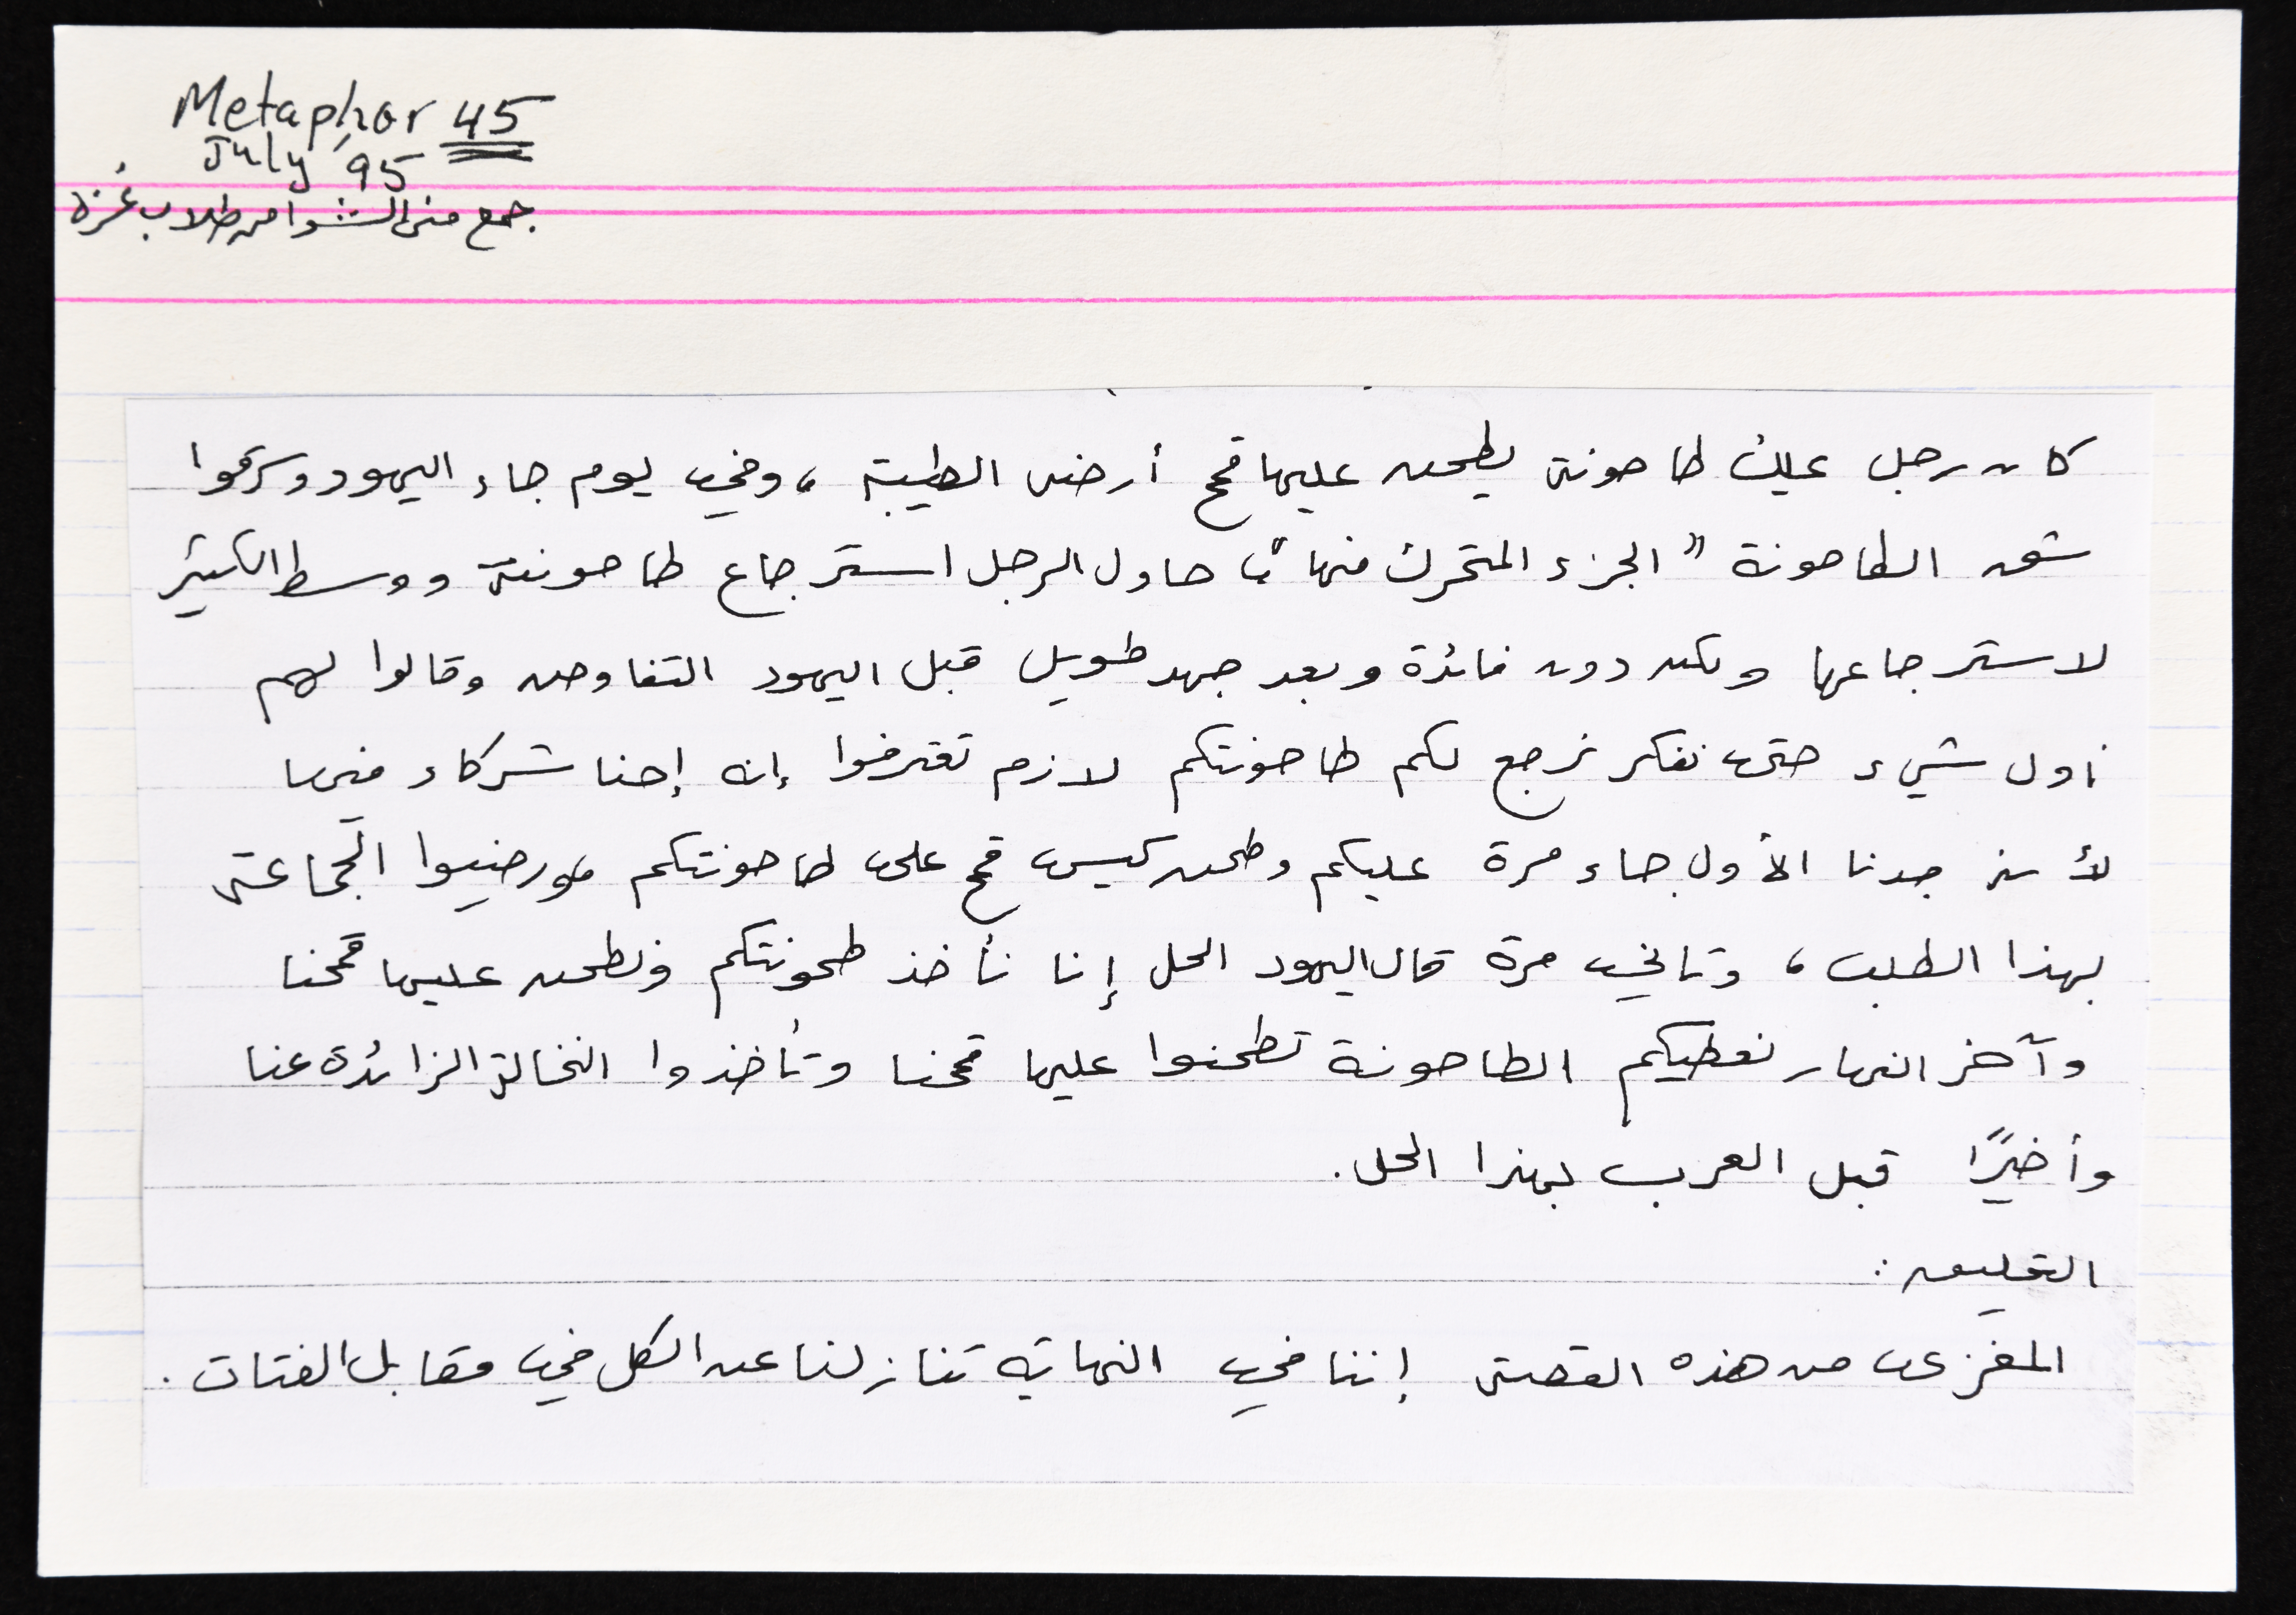 Metaphor 45
July '95
جمع منى الشوا من طلاب غزة
كان رجل يملك طاحونة يطحن عليها قمح أرضه الطيبة، وفي يوم جاء اليهود وسرقوا
شق الطاحونة "الجزء المتحرك منها"، حاول الرجل استرجاع طاحونته ووسط الكثير
لاسترجاعها ولكن دون فائدة وبعد جهد طويل قبل اليهود التفاوض وقالوا لهم
أول شيء حتى نفكر نرجع لكم طاحونتكم لازم تعترفوا إنه إحنا شركاء فيها
لأنه جدنا الأول جاء مرة عليكم وطحن كيس قمح على طاحونتكم فورضيوا الجماعة
بهذا الطلب، وتاني مرة قال اليهود الحل إنا نأخذ طحونتكم ونطحن عليها قمحنا
وآخر النهار نعطيكم الطاحونة تطحنوا عليها قمحنا وتأخذوا النخالة الزائدة عنا
وأخيرًا قبل العرب بهذا الحل.
التعليق:
المغزى من هذه القصة إننا في النهاية تنازلنا عن الكل في مقابل الفتات.